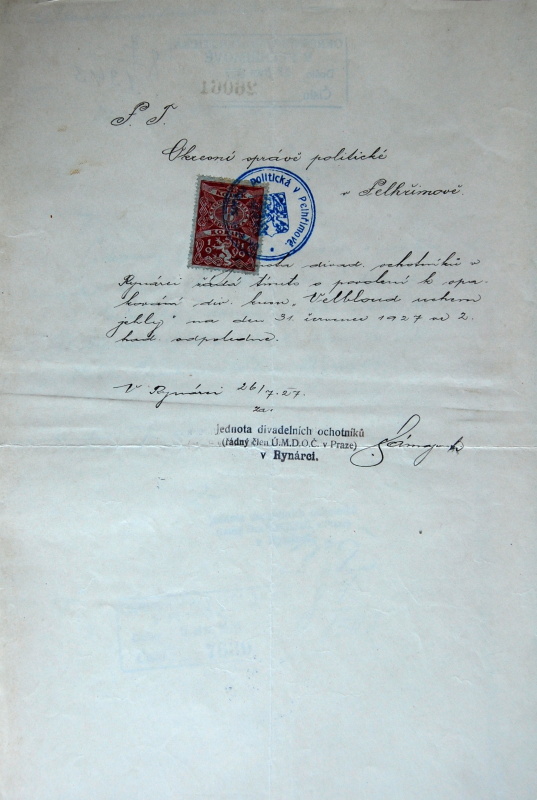 P. T.
Okresní správě politické
v Pelhřimově
politická v Pelhřimově
KORUN
divad. ochotníků v
Rynárci žádá tímto o povolení k opa-
kování div. kusu „Velbloud uchem
jehly" na den 31. července 1927 ve 2.
hod. odpoledne.
V Rynárci 26/7.27.
za.
jednota divadelních ochotníků
(řádný člen Ú.M.D.O.Č. v Praze)
v Rynárci.